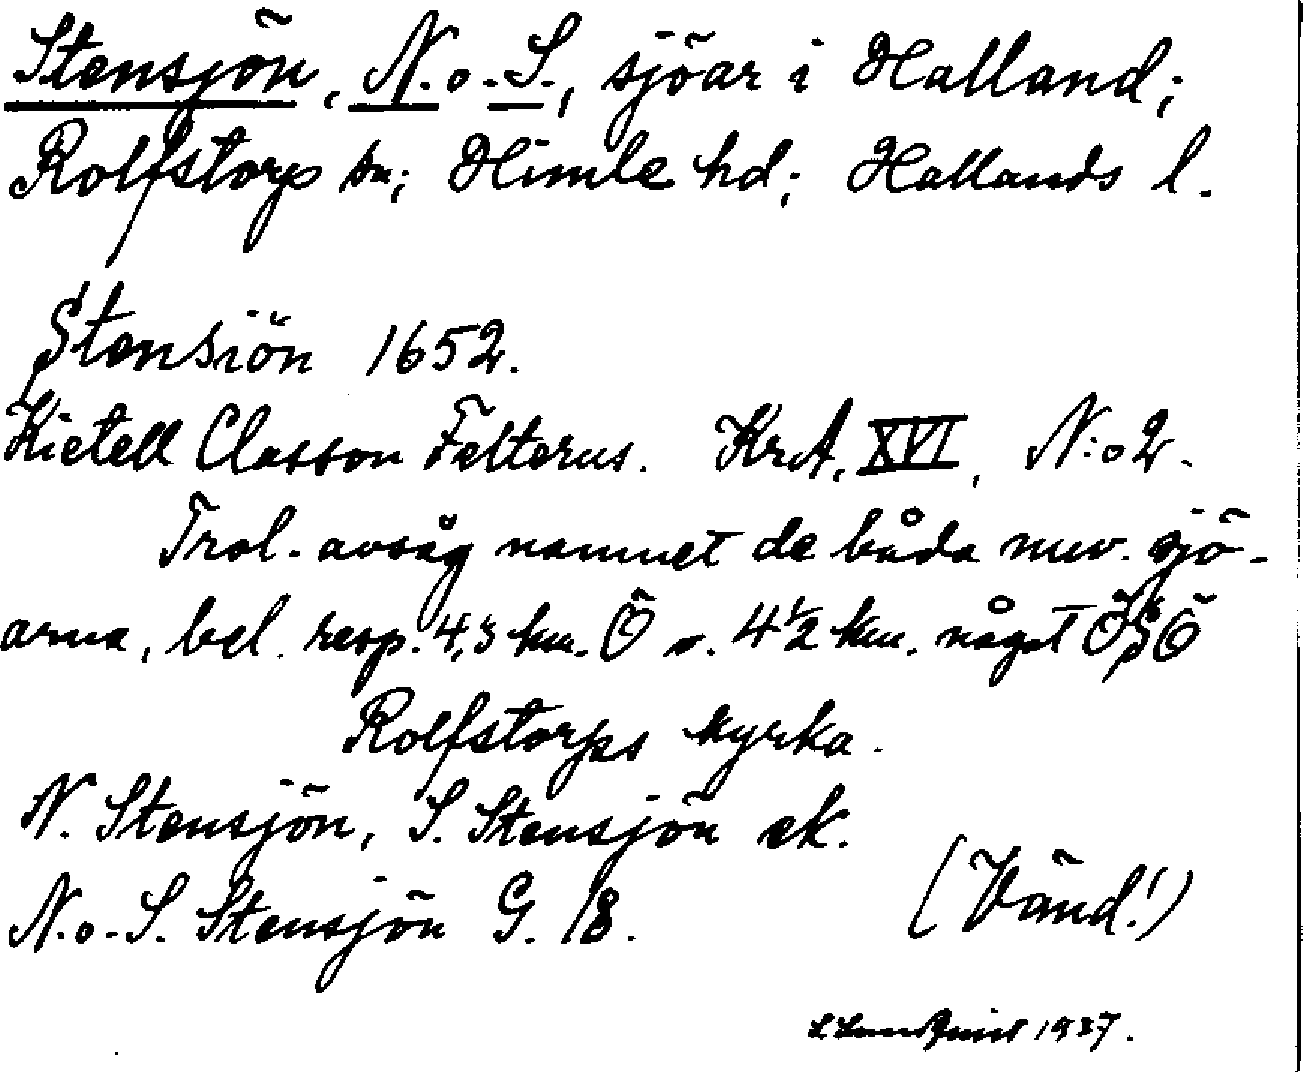 Stensjön, N. o. S., sjöar i Halland;
Rolfstorps sn; Himle hd; Hallands l.
Stensiön 1652.
Kietell Classon Felterus. KrA, XVI, N:o 2.
Trol. avsåg namnet de båda nuv. sjö-
arna, bel. resp. 4,3 km. Ö o. 4 1/2 km. något ÖSÖ
Rolfstorps kyrka.
N. Stensjön, S. Stensjön ek.
N. o. S. Stensjön G. 18.
(Vänd!)
L Lundquist 1937.